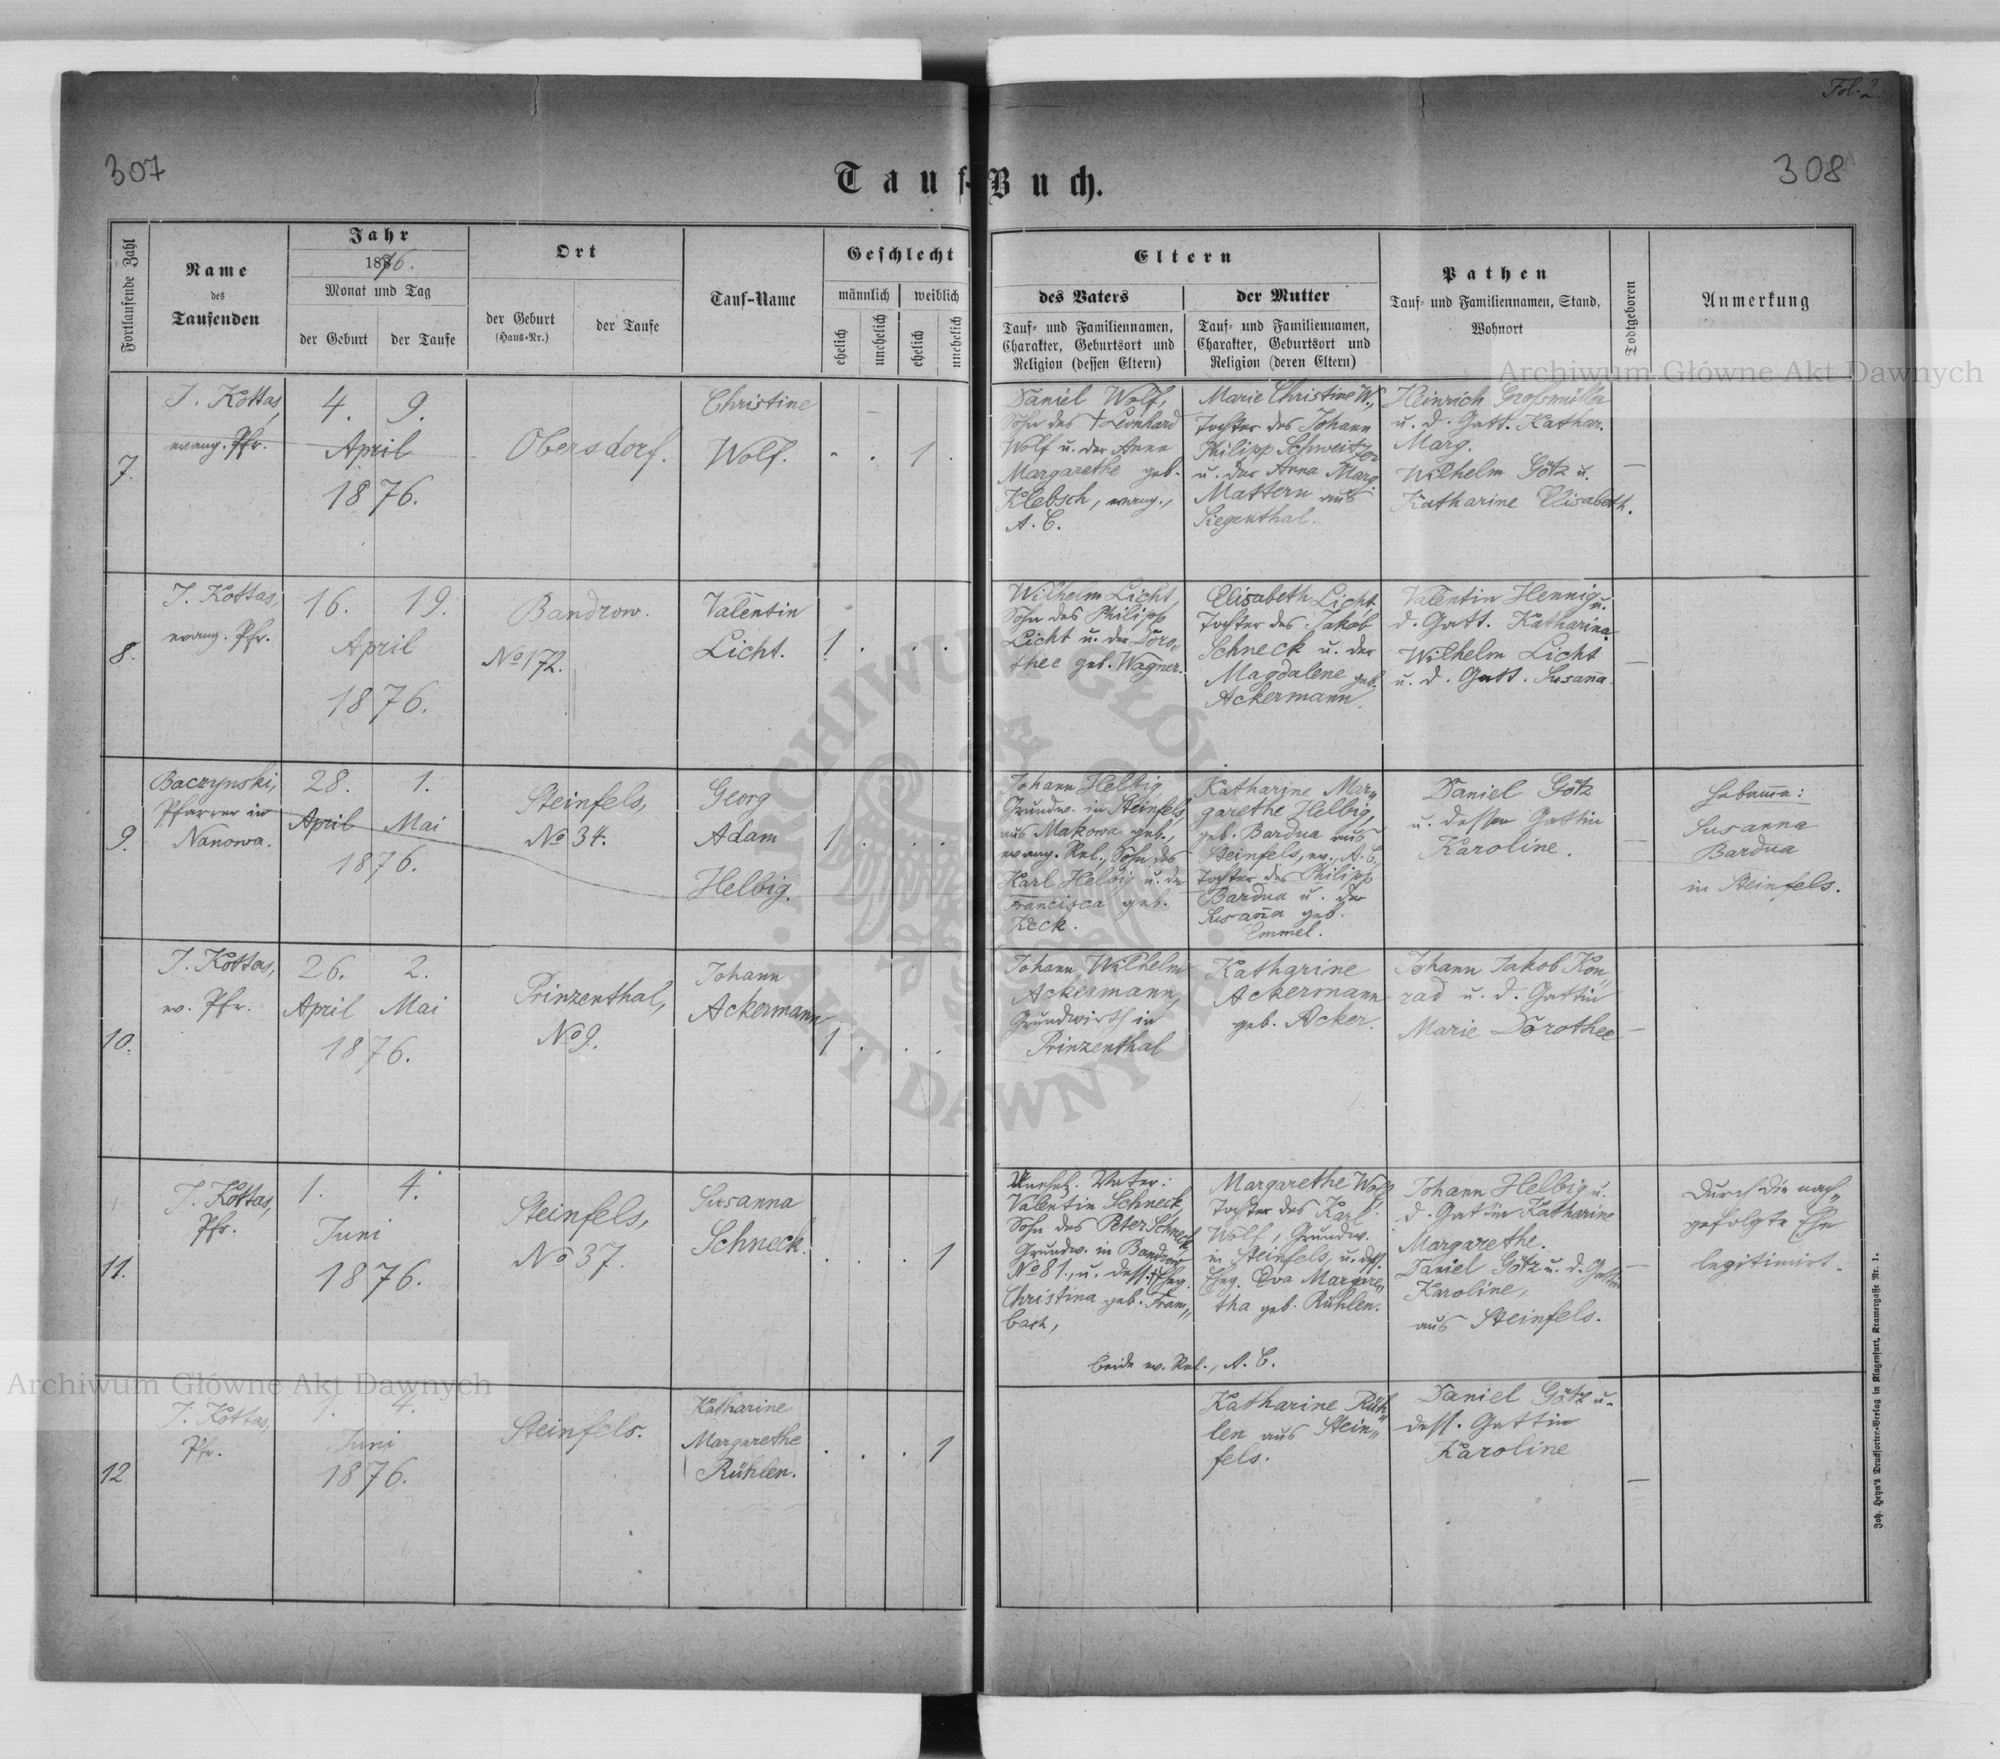 Fol. 2.
307
308
Tauf-Buch.
Fortlaufende Zahl
Name
des
Taufenden
Jahr
1876.
Monat und Tag
der Geburt
der Taufe
Ort
der Geburt
(Haus-Nr.)
der Taufe
Tauf-Name
Geschlecht
männlich
weiblich
ehelich
unehelich
ehelich
unehelich
Eltern
des Vaters
Tauf- und Familiennamen,
Charakter, Geburtsort und
Religion (dessen Eltern)
der Mutter
Tauf- und Familiennamen,
Charakter, Geburtsort und
Religion (deren Eltern)
Pathen
Tauf- und Familiennamen, Stand,
Wohnort
Todtgeboren
Anmerkung
7.
J. Kottas,
evang. Pfr.
4. 9.
April
1876.
Obersdorf.
Christine
Wolf.
- . 1 .
Daniel Wolf,
Sohn des † Leonhard
Wolf u. der Anna
Margarethe geb.
Klebsch, evang.,
A. C.
Marie Christine W.,
Tochter des Johann
Philipp Schweitzer
u. der Anna Marg.
Mattern aus
Siegenthal.
Heinrich Großmüller
u. d. Gatt. Kathar.
Marg.
Wilhelm Götz u.
Katharine Elisabeth.
—
8.
J. Kottas,
evang. Pfr.
16. 19.
April
1876.
Bandrow.
No 172.
Valentin
Licht.
1 . . .
Wilhelm Licht,
Sohn des Philipp
Licht u. der Doro„
thee geb. Wagner.
Elisabeth Licht,
Tochter des Jakob
Schneck u. der
Magdalene geb.
Ackermann.
Valentin Hennig u.
d. Gatt. Katharina.
Wilhelm Licht
u. d. Gatt. Susanna.
—
9.
Baczynski,
Pfarrer in
Nanowa.
28. 1.
April Mai
1876.
Steinfels,
No 34.
Georg
Adam
Helbig.
1 . . .
Johann Helbig
Grundw. in Steinfels,
aus Makowa geb.,
evang. Rel., Sohn des
Karl Helbig u. der
Francisca geb.
Keck.
Katharine Mar„
garethe Helbig,
geb. Bardua aus
Steinfels, ev. A. C.
Tochter des Philipp
Bardua u. der
Susanna geb.
Emmel.
Daniel Götz
u. dessen Gattin
Karoline.
—
Hebamme:
Susanna
Bardua
in Steinfels.
10.
J. Kottas,
ev. Pfr.
26. 2.
April Mai
1876.
Prinzenthal,
No 9.
Johann
Ackermann
1 . . .
Johann Wilhelm
Ackermann,
Grundwirth in
Prinzenthal
Katharine
Ackermann
geb. Acker.
Johann Jakob Kon„
rad u. d. Gattin
Marie Dorothee
—
11.
J. Kottas,
Pfr.
1. 4.
Juni
1876.
Steinfels,
No 37.
Susanna
Schneck.
. . . 1
Unehel. Vater:
Valentin Schneck,
Sohn des Peter Schneck,
Grundw. in Bandrow
No 81., u. dess. Eheg.
Christina geb. Fram„
bach,
Margarethe Wolf
Tochter des Karl
Wolf, Grundw.
in Steinfels, u. dess.
Eheg. Eva Margare„
tha geb. Rühlen.
beide ev. Rel., A. C.
Johann Helbig u.
d. Gattin Katharine
Margarethe.
Daniel Götz u. d. Gattin
Karoline,
aus Steinfels.
—
Durch die nach„
gefolgte Ehe
legitimirt.
12
J. Kottas,
Pfr.
1. 4.
Juni
1876.
Steinfels.
Katharine
Margarethe
Rühlen.
. . . 1
Katharine Rüh„
len aus Stein„
fels.
Daniel Götz u.
dess. Gattin
Karoline
—
Joh. Heyn's Drucksorten-Verlag in Klagenfurt, Kramergasse Nr. 1.
Archiwum Główne Akt Dawnych
Archiwum Główne Akt Dawnych
ARCHIWUM GŁÓWNE AKT DAWNYCH